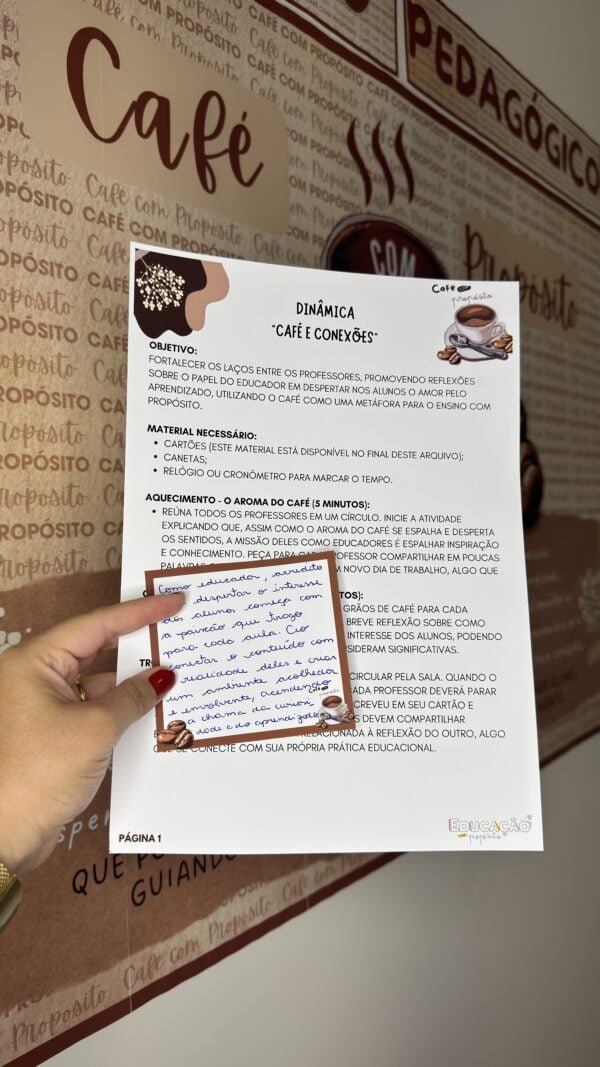 PEDAGÓGICO
Café
COM
Propósito
Café com Propósito
CAFÉ COM PROPÓSITO
Café
propósito
DINÂMICA
"CAFÉ E CONEXÕES"
OBJETIVO:
FORTALECER OS LAÇOS ENTRE OS PROFESSORES, PROMOVENDO REFLEXÕES
SOBRE O PAPEL DO EDUCADOR EM DESPERTAR NOS ALUNOS O AMOR PELO
APRENDIZADO, UTILIZANDO O CAFÉ COMO UMA METÁFORA PARA O ENSINO COM
PROPÓSITO.
MATERIAL NECESSÁRIO:
• CARTÕES (ESTE MATERIAL ESTÁ DISPONÍVEL NO FINAL DESTE ARQUIVO);
• CANETAS;
• RELÓGIO OU CRONÔMETRO PARA MARCAR O TEMPO.
AQUECIMENTO - O AROMA DO CAFÉ (5 MINUTOS):
• REÚNA TODOS OS PROFESSORES EM UM CÍRCULO. INICIE A ATIVIDADE
EXPLICANDO QUE, ASSIM COMO O AROMA DO CAFÉ SE ESPALHA E DESPERTA
OS SENTIDOS, A MISSÃO DELES COMO EDUCADORES É ESPALHAR INSPIRAÇÃO
E CONHECIMENTO. PEÇA PARA CADA PROFESSOR COMPARTILHAR EM POUCAS
M NOVO DIA DE TRABALHO, ALGO QUE
GRÃOS DE CAFÉ PARA CADA
BREVE REFLEXÃO SOBRE COMO
INTERESSE DOS ALUNOS, PODENDO
SIDERAM SIGNIFICATIVAS.
CIRCULAR PELA SALA. QUANDO O
CADA PROFESSOR DEVERÁ PARAR
CREVEU EM SEU CARTÃO E
S DEVEM COMPARTILHAR
RELACIONADA À REFLEXÃO DO OUTRO, ALGO
QUE SE CONECTE COM SUA PRÓPRIA PRÁTICA EDUCACIONAL.
Como educador, acredito
despertar o interesse
dos alunos começa com
a paixão que trago
para cada aula. Ao
conectar o conteúdo com
realidade deles e criar
um ambiente acolhedor
e envolvente, acendendo
a chama da curiosi
dade e do aprendizado
PÁGINA 1
EDUCAÇÃO
propósito
QUE
GUIANDO